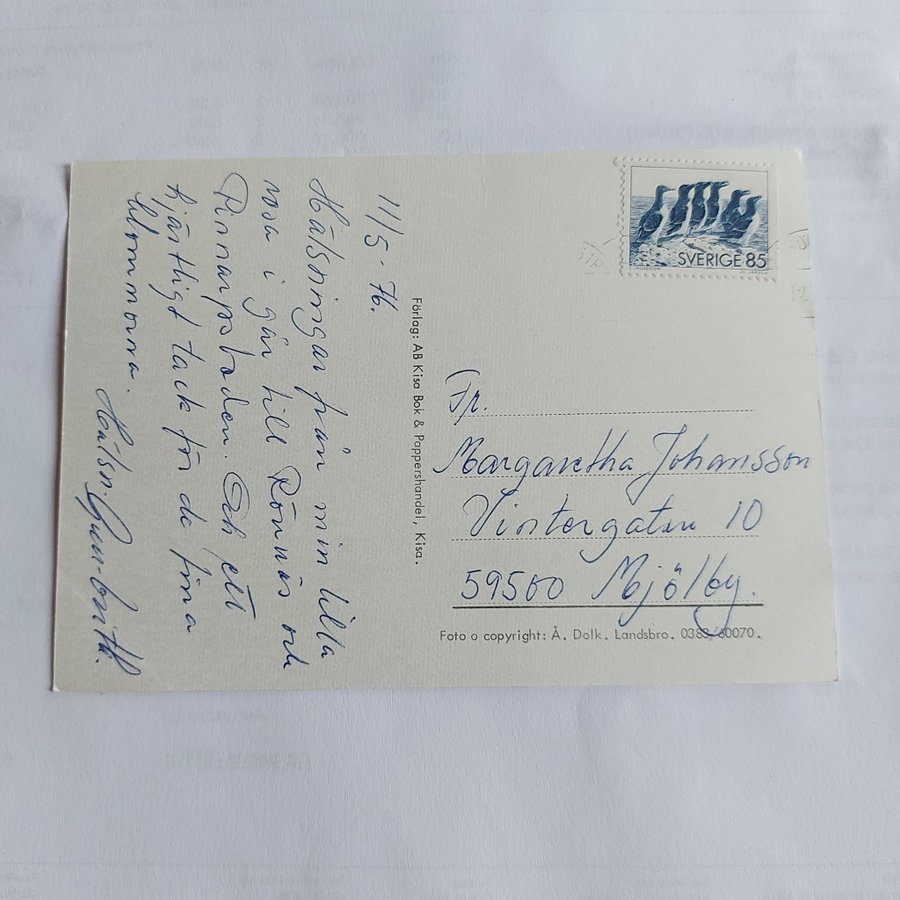 11/5-76.
Hälsningar från min lilla
resa i går till Rönnäs och
Pinnarpsboden. Och ett
hjärtligt tack för de fina
blommorna.
Hälsn. Gun-Britt.
Förlag: AB Kisa Bok & Pappershandel, Kisa.
SVERIGE 85
Fr.
Margaretha Johansson
Vintergatan 10
59500 Mjölby.
Foto o copyright: Å. Dolk. Landsbro. 0383/60070.